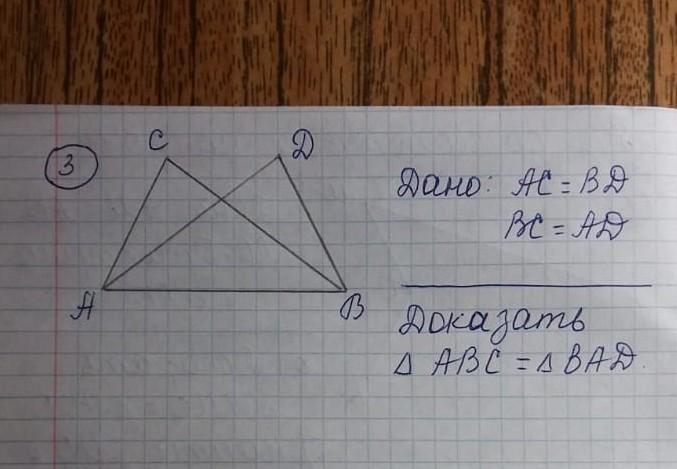 3
C
D
A
B
Дано: AC = BD
BC = AD
Доказать
Δ ABC = Δ BAD.